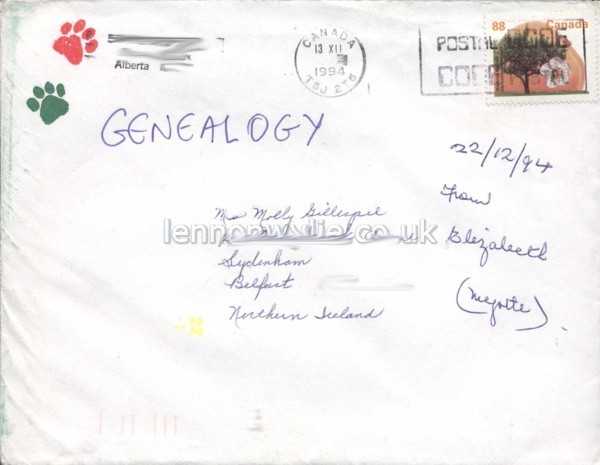 Alberta
CANADA
13 XII
1994
T5J 2T6
POSTAL CODE
88 Canada
GENEALOGY
22/12/94
From
Elizabeth
Mrs Molly Gillespie
lennonwylie.co.uk
Sydenham
Belfast
Northern Ireland